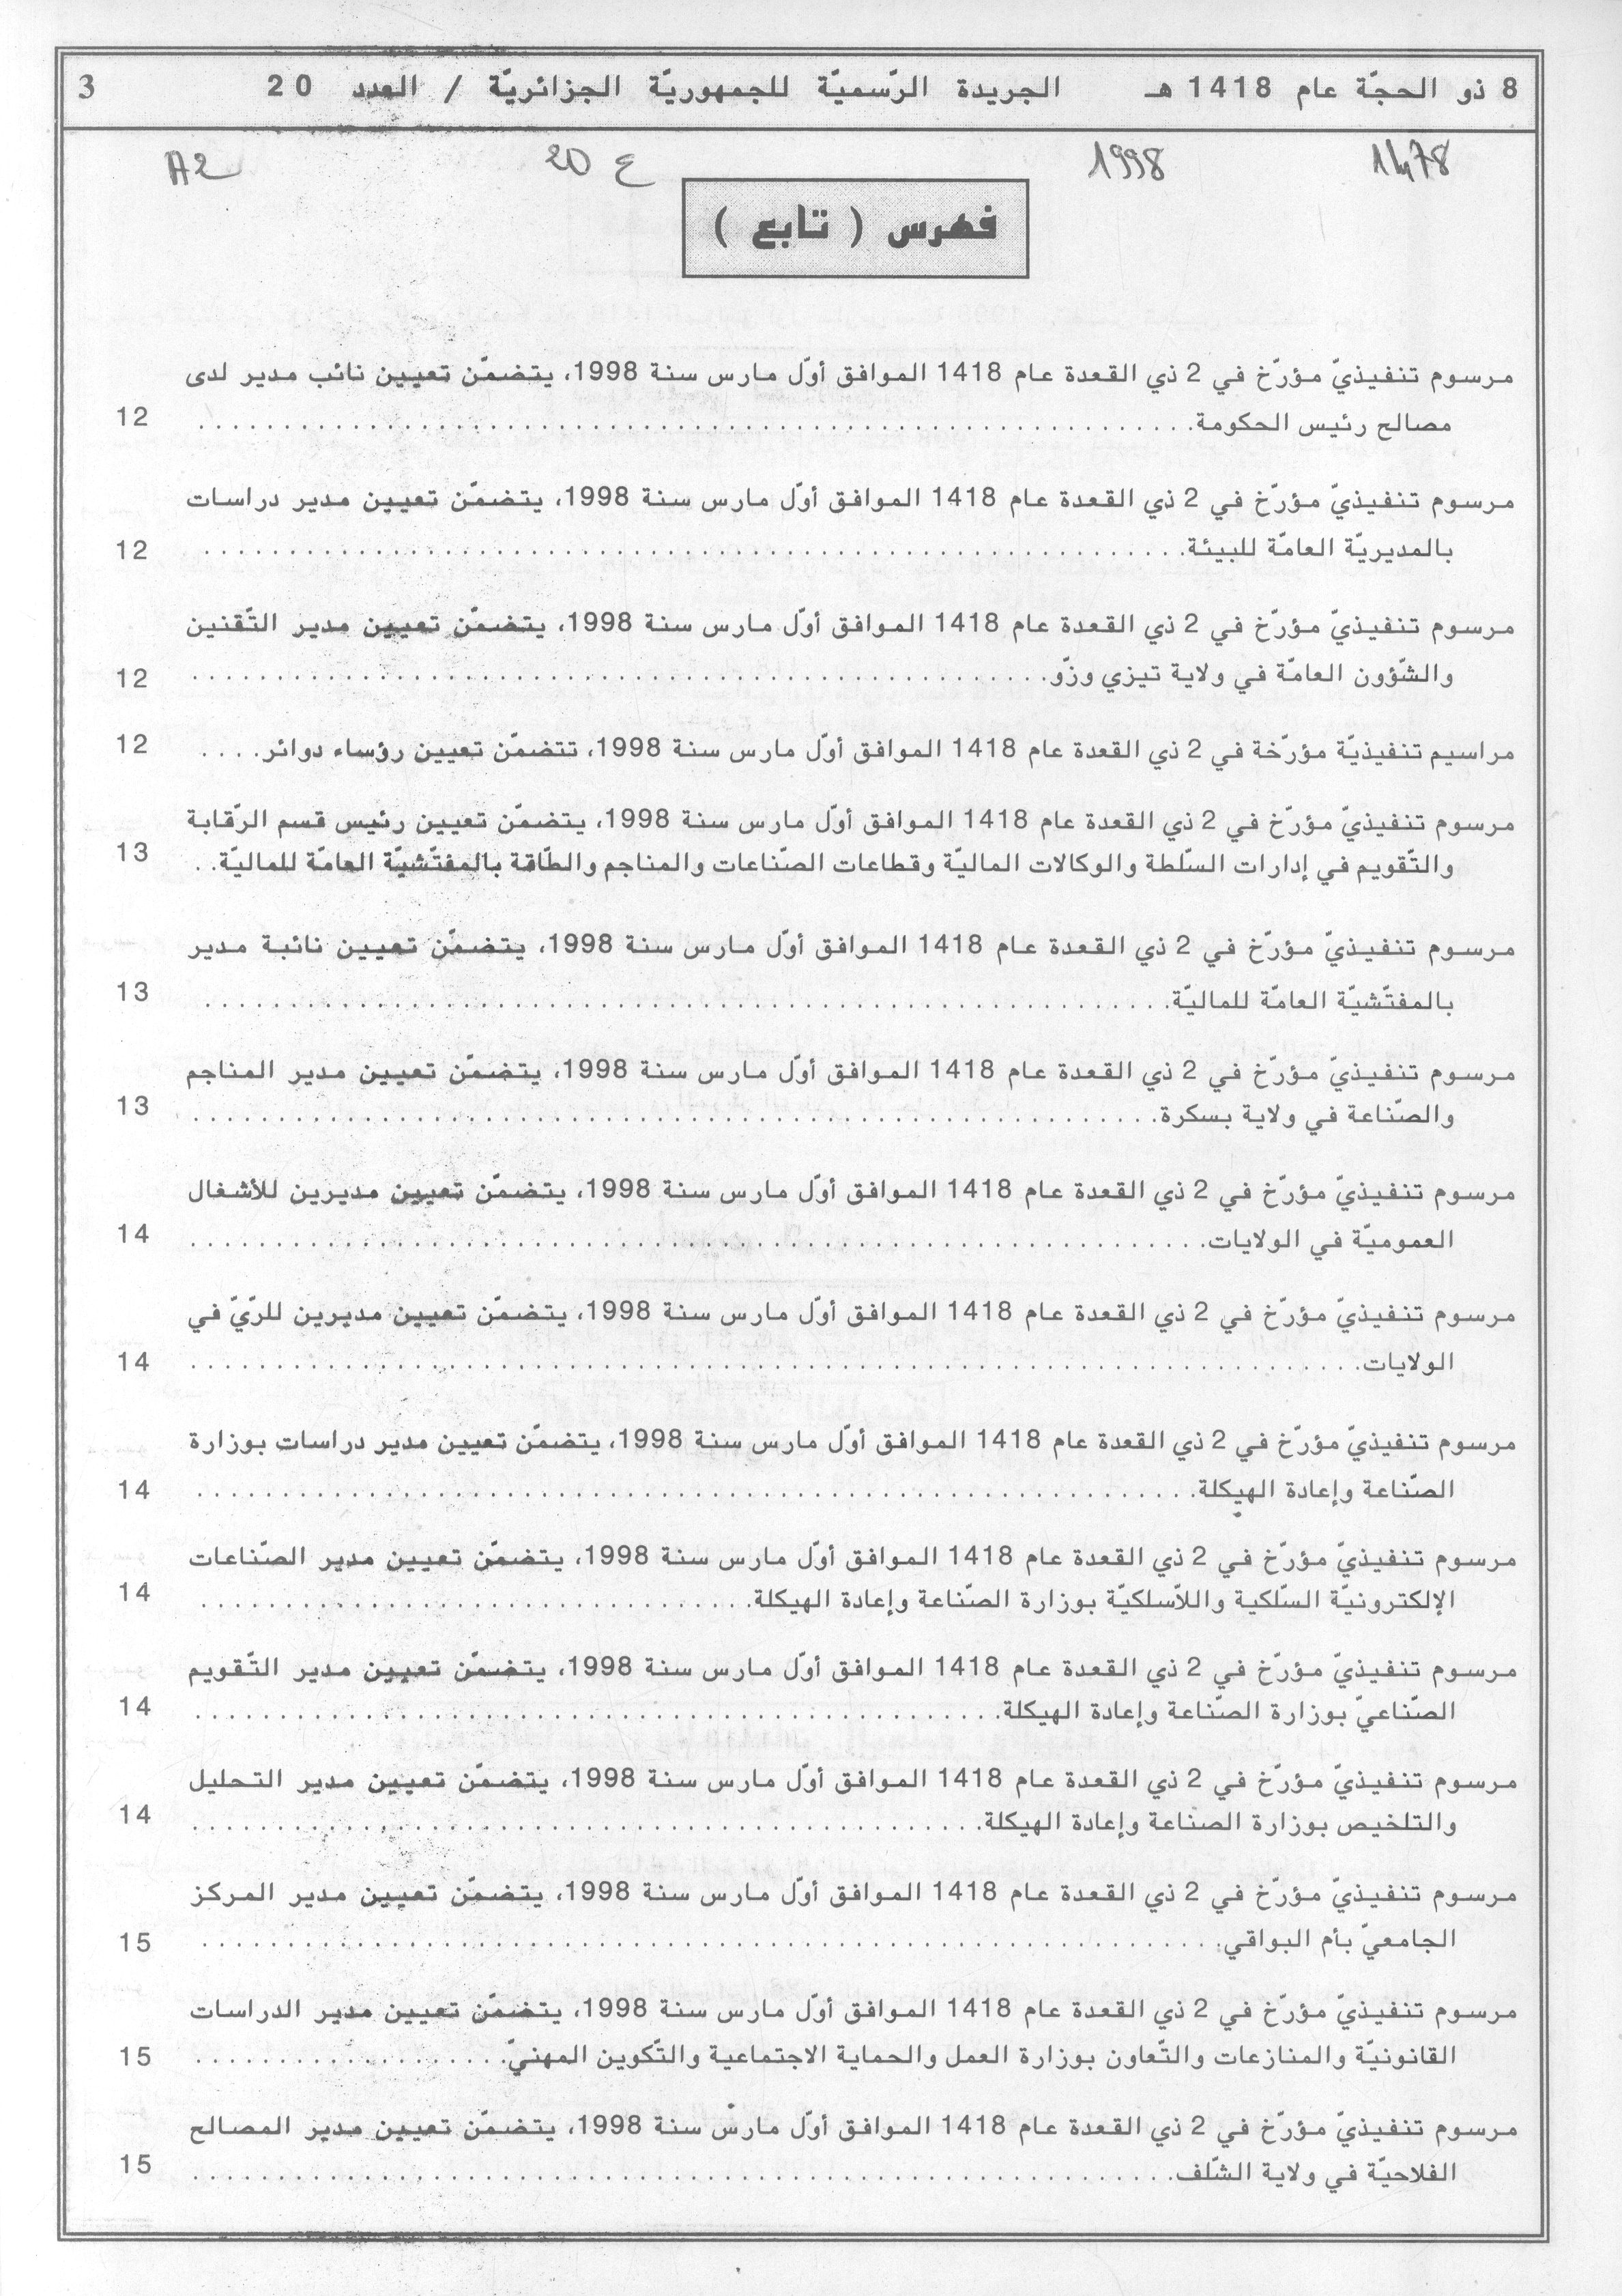 8 ذو الحجّة عام 1418 هـ الجريدة الرّسميّة للجمهوريّة الجزائريّة / العدد 20 3
1998 20 ع A2
فهرس ( تابع )
مرسوم تنفيذيّ مؤرّخ في 2 ذي القعدة عام 1418 الموافق أوّل مارس سنة 1998، يتضمّن تعيين نائب مدير لدى
مصالح رئيس الحكومة. . . . . . . . . . 12
مرسوم تنفيذيّ مؤرّخ في 2 ذي القعدة عام 1418 الموافق أوّل مارس سنة 1998، يتضمّن تعيين مدير دراسات
بالمديريّة العامّة للبيئة. . . . . . . . . . 12
مرسوم تنفيذيّ مؤرّخ في 2 ذي القعدة عام 1418 الموافق أوّل مارس سنة 1998، يتضمّن تعيين مدير التّقنين
والشّؤون العامّة في ولاية تيزي وزّو. . . . . . . . . . 12
مراسيم تنفيذيّة مؤرّخة في 2 ذي القعدة عام 1418 الموافق أوّل مارس سنة 1998، تتضمّن تعيين رؤساء دوائر. . . . 12
مرسوم تنفيذيّ مؤرّخ في 2 ذي القعدة عام 1418 الموافق أوّل مارس سنة 1998، يتضمّن تعيين رئيس قسم الرّقابة
والتّقويم في إدارات السّلطة والوكالات الماليّة وقطاعات الصّناعات والمناجم والطّاقة بالمفتّشيّة العامّة للماليّة. . 13
مرسوم تنفيذيّ مؤرّخ في 2 ذي القعدة عام 1418 الموافق أوّل مارس سنة 1998، يتضمّن تعيين نائبة مدير
بالمفتّشيّة العامّة للماليّة. . . . . . . . . . 13
مرسوم تنفيذيّ مؤرّخ في 2 ذي القعدة عام 1418 الموافق أوّل مارس سنة 1998، يتضمّن تعيين مدير المناجم
والصّناعة في ولاية بسكرة. . . . . . . . . . 13
مرسوم تنفيذيّ مؤرّخ في 2 ذي القعدة عام 1418 الموافق أوّل مارس سنة 1998، يتضمّن تعيين مديرين للأشغال
العموميّة في الولايات. . . . . . . . . . 14
مرسوم تنفيذيّ مؤرّخ في 2 ذي القعدة عام 1418 الموافق أوّل مارس سنة 1998، يتضمّن تعيين مديرين للرّيّ في
الولايات. . . . . . . . . . 14
مرسوم تنفيذيّ مؤرّخ في 2 ذي القعدة عام 1418 الموافق أوّل مارس سنة 1998، يتضمّن تعيين مدير دراسات بوزارة
الصّناعة وإعادة الهيكلة. . . . . . . . . . 14
مرسوم تنفيذيّ مؤرّخ في 2 ذي القعدة عام 1418 الموافق أوّل مارس سنة 1998، يتضمّن تعيين مدير الصّناعات
الإلكترونيّة السّلكية واللاّسلكيّة بوزارة الصّناعة وإعادة الهيكلة. . . . . . . . . . 14
مرسوم تنفيذيّ مؤرّخ في 2 ذي القعدة عام 1418 الموافق أوّل مارس سنة 1998، يتضمّن تعيين مدير التّقويم
الصّناعيّ بوزارة الصّناعة وإعادة الهيكلة. . . . . . . . . . 14
مرسوم تنفيذيّ مؤرّخ في 2 ذي القعدة عام 1418 الموافق أوّل مارس سنة 1998، يتضمّن تعيين مدير التحليل
والتلخيص بوزارة الصناعة وإعادة الهيكلة. . . . . . . . . . 14
مرسوم تنفيذيّ مؤرّخ في 2 ذي القعدة عام 1418 الموافق أوّل مارس سنة 1998، يتضمّن تعيين مدير المركز
الجامعيّ بأم البواقي. . . . . . . . . . 15
مرسوم تنفيذيّ مؤرّخ في 2 ذي القعدة عام 1418 الموافق أوّل مارس سنة 1998، يتضمّن تعيين مدير الدراسات
القانونيّة والمنازعات والتّعاون بوزارة العمل والحماية الاجتماعية والتّكوين المهنيّ. . . . . . . . . . 15
مرسوم تنفيذيّ مؤرّخ في 2 ذي القعدة عام 1418 الموافق أوّل مارس سنة 1998، يتضمّن تعيين مدير المصالح
الفلاحيّة في ولاية الشّلف. . . . . . . . . . 15